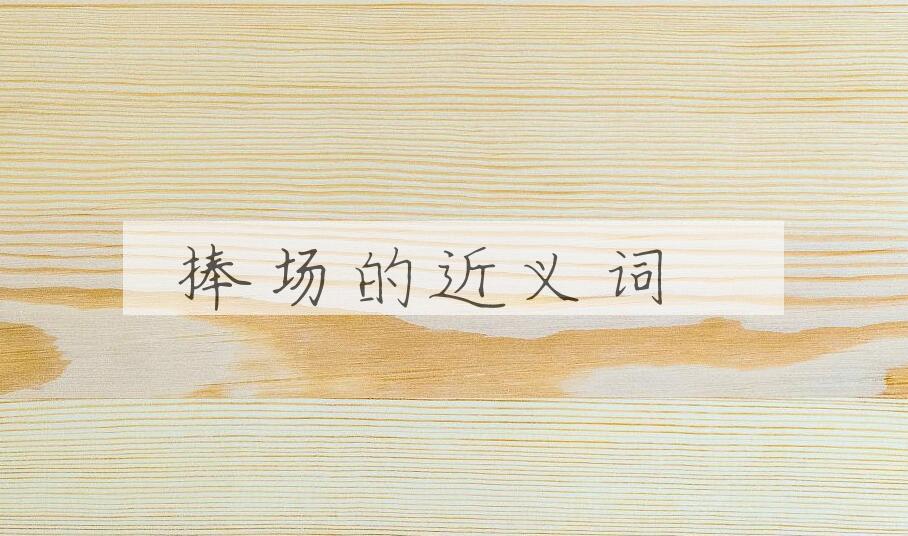 捧场的近义词